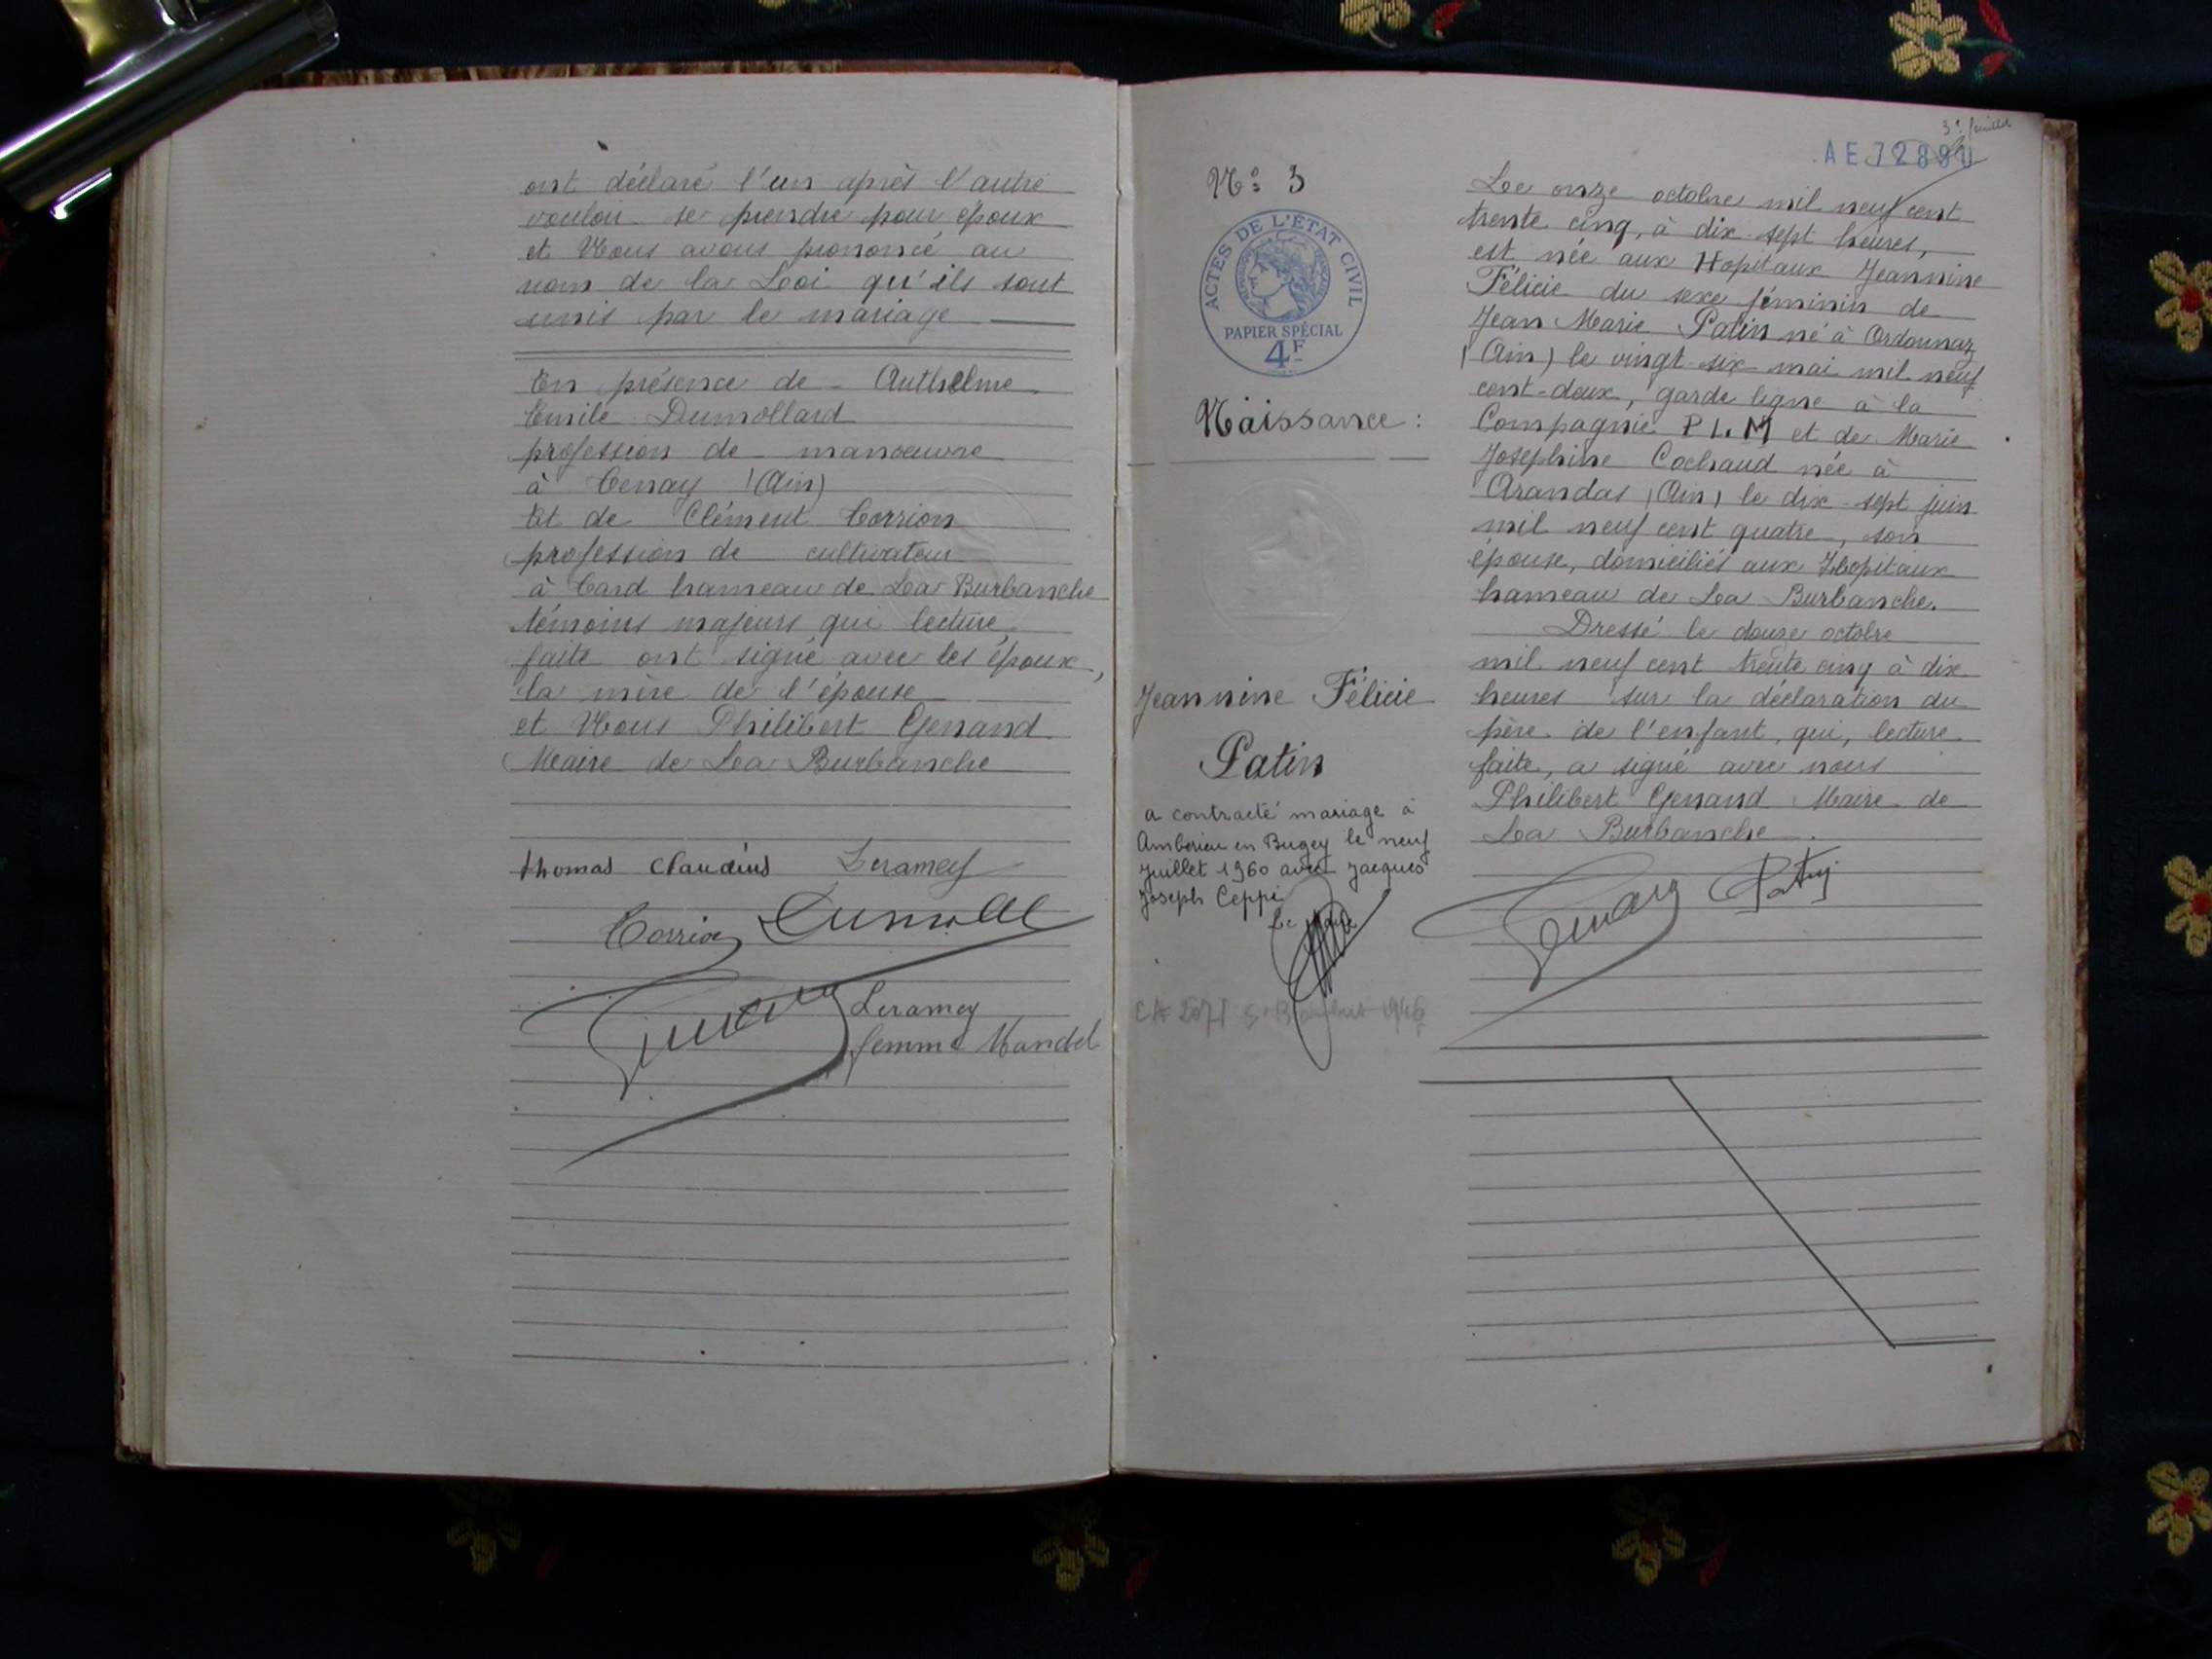 ont déclaré l'un après l'autre
vouloir se prendre pour époux
et Nous avons prononcé au
nom de la Loi qu'ils sont
unis par le mariage
En présence de Anthelme
Emile Dumollard
profession de manoeuvre
à Tenay (Ain)
Et de Clément Corrion
profession de cultivateur
à Tard hameau de La Burbanche
témoins majeurs qui lecture
faite ont signé avec les époux,
la mère de l'épouse
et Nous Philibert Genand
Maire de La Burbanche
Thomas Claudius Leramey
Corrion Dumoll
Genand
Leramey
femme Mandel
3e feuillet
AE72880
N° 3
ACTES DE L'ÉTAT CIVIL
RÉPUBLIQUE FRANÇAISE
PAPIER SPÉCIAL
4F
Naissance :
Jeannine Félicie
Patin
a contracté mariage à
Ambérieu en Bugey le neuf
Juillet 1960 avec Jacques
Joseph Ceppi
Le Maire
Le onze octobre mil neuf cent
trente cinq, à dix-sept heures,
est née aux Hopitaux Jeannine
Félicie du sexe féminin de
Jean Marie Patin né à Ordonnaz
(Ain) le vingt-six mai mil neuf
cent-deux, garde ligne à la
Compagnie P L. M et de Marie
Josephine Cochaud née à
Arandas (Ain) le dix-sept juin
mil neuf cent quatre, son
épouse, domiciliés aux Hopitaux
hameau de La Burbanche.
Dressé le douze octobre
mil neuf cent trente cinq à dix
heures sur la déclaration du
père de l'enfant, qui, lecture
faite, a signé avec nous
Philibert Genand Maire de
La Burbanche.
Genand Patin